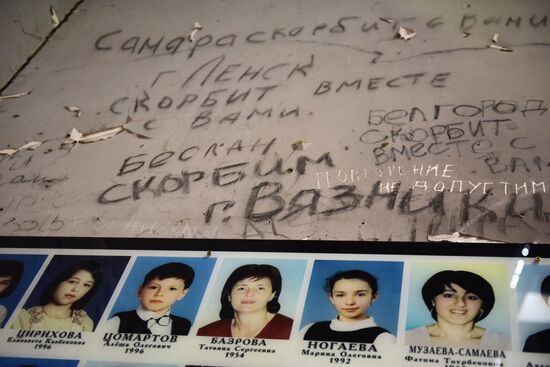 Самара скорбит с вами
г Ленск
скорбит вместе
с вами.
Белгород
скорбит
вместе с
вами
Беслан
скорбим
г. Вязники
повторение
не допустим
ЦИРИХОВА
Елизавета Казбековна
1996
ЦОМАРТОВ
Алёша Олегович
1996
БАЗРОВА
Татьяна Сергеевна
1954
НОГАЕВА
Марина Олеговна
1992
МУЗАЕВА-САМАЕВА
Фатима Тотрбековна